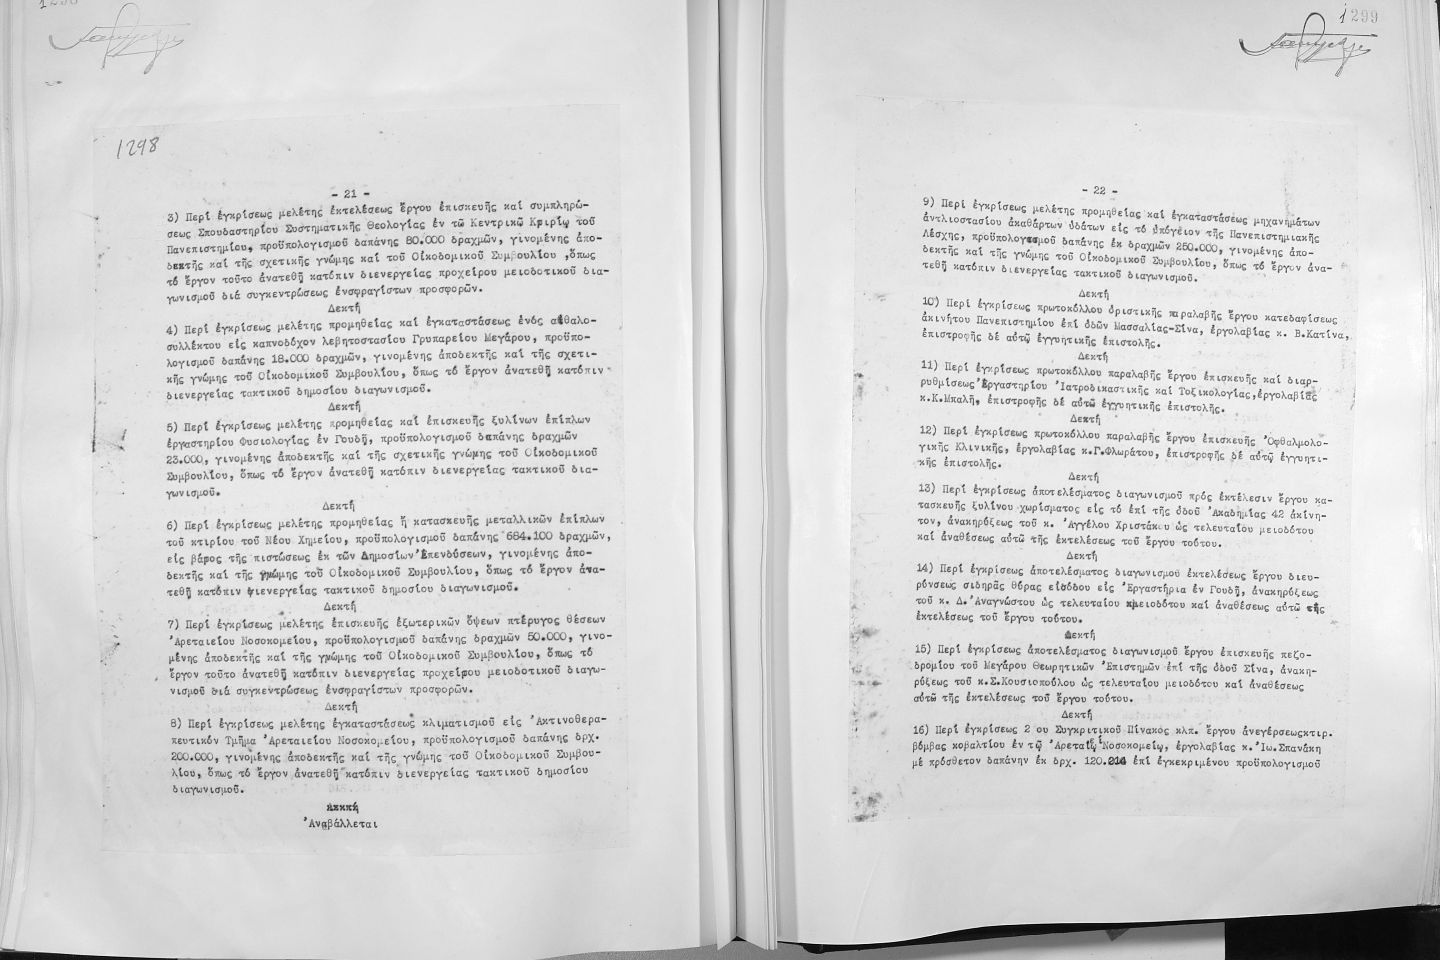 1298
- 21 -
3) Περί ἐγκρίσεως μελέτης ἐκτελέσεως ἔργου ἐπισκευῆς καί συμπληρώ-
σεως Σπουδαστηρίου Συστηματικῆς Θεολογίας ἐν τῶ Κεντρικῶ Κριρίῳ τοῦ
Πανεπιστημίου, προϋπολογισμοῦ δαπάνης 80.000 δραχμῶν, γινομένης ἀπο-
δεκτῆς καί τῆς σχετικῆς γνώμης καί τοῦ Οἰκοδομικοῦ Συμβουλίου ,ὅπως
τό ἔργον τοῦτο ἀνατεθῇ κατόπιν διενεργείας προχείρου μειοδοτικοῦ δια-
γωνισμοῦ διά συγκεντρώσεως ἐνσφραγίστων προσφορῶν.
Δεκτή
4) Περί ἐγκρίσεως μελέτης προμηθείας καί ἐγκαταστάσεως ἑνός αἰθαλο-
συλλέκτου εἰς καπνοδόχον λεβητοστασίου Γρυπαρείου Μεγάρου, προϋπο-
λογισμοῦ δαπάνης 18.000 δραχμῶν, γινομένης ἀποδεκτῆς καί τῆς σχετι-
κῆς γνώμης τοῦ Οἰκοδομικοῦ Συμβουλίου, ὅπως τό ἔργον ἀνατεθῇ κατόπιν
διενεργείας τακτικοῦ δημοσίου διαγωνισμοῦ.
Δεκτή
5) Περί ἐγκρίσεως μελέτης προμηθείας καί ἐπισκευῆς ξυλίνων ἐπίπλων
ἐργαστηρίου Φυσιολογίας ἐν Γουδῇ, προϋπολογισμοῦ δαπάνης δραχμῶν
23.000, γινομένης ἀποδεκτῆς καί τῆς σχετικῆς γνώμης τοῦ Οἰκοδομικοῦ
Συμβουλίου, ὅπως τό ἔργον ἀνατεθῇ κατόπιν διενεργείας τακτικοῦ δια-
γωνισμοῦ.
Δεκτή
6) Περί ἐγκρίσεως μελέτης προμηθείας ἤ κατασκευῆς μεταλλικῶν ἐπίπλων
τοῦ κτιρίου τοῦ Νέου Χημείου, προϋπολογισμοῦ δαπάνης 684.100 δραχμῶν,
εἰς βάρος τῆς πιστώσεως ἐκ τῶν Δημοσίων Ἐπενδύσεων, γινομένης ἀπο-
δεκτῆς καί τῆς γνώμης τοῦ Οἰκοδομικοῦ Συμβουλίου, ὅπως τό ἔργον ἀνα-
τεθῇ κατόπιν διενεργείας τακτικοῦ δημοσίου διαγωνισμοῦ.
Δεκτή
7) Περί ἐγκρίσεως μελέτης ἐπισκευῆς ἐξωτερικῶν ὄψεων πτέρυγος θέσεων
Ἀρεταιείου Νοσοκομείου, προϋπολογισμοῦ δαπάνης δραχμῶν 50.000, γινο-
μένης ἀποδεκτῆς καί τῆς γνώμης τοῦ Οἰκοδομικοῦ Συμβουλίου, ὅπως τό
ἔργον τοῦτο ἀνατεθῇ κατόπιν διενεργείας προχείρου μειοδοτικοῦ διαγω-
νισμοῦ διά συγκεντρώσεως ἐνσφραγίστων προσφορῶν.
Δεκτή
8) Περί ἐγκρίσεως μελέτης ἐγκαταστάσεως κλιματισμοῦ εἰς Ἀκτινοθερα-
πευτικόν Τμῆμα Ἀρεταιείου Νοσοκομείου, προϋπολογισμοῦ δαπάνης δρχ.
200.000, γινομένης ἀποδεκτῆς καί τῆς γνώμης τοῦ Οἰκοδομικοῦ Συμβου-
λίου, ὅπως τό ἔργον ἀνατεθῇ κατόπιν διενεργείας τακτικοῦ δημοσίου
διαγωνισμοῦ.
Ἀναβάλλεται
1299
- 22 -
9) Περί ἐγκρίσεως μελέτης προμηθείας καί ἐγκαταστάσεως μηχανημάτων
ἀντλιοστασίου ἀκαθάρτων ὑδάτων εἰς τό ὑπόγειον τῆς Πανεπιστημιακῆς
Λέσχης, προϋπολογισμοῦ δαπάνης ἐκ δραχμῶν 250.000, γινομένης ἀπο-
δεκτῆς καί τῆς γνώμης τοῦ Οἰκοδομικοῦ Συμβουλίου, ὅπως τό ἔργον ἀνα-
τεθῇ κατόπιν διενεργείας τακτικοῦ διαγωνισμοῦ.
Δεκτή
10) Περί ἐγκρίσεως πρωτοκόλλου ὁριστικῆς παραλαβῆς ἔργου κατεδαφίσεως
ἀκινήτου Πανεπιστημίου ἐπί ὁδῶν Μασσαλίας-Σίνα, ἐργολαβίας κ. Β.Κατίνα,
ἐπιστροφῆς δέ αὐτῷ ἐγγυητικῆς ἐπιστολῆς.
Δεκτή
11) Περί ἐγκρίσεως πρωτοκόλλου παραλαβῆς ἔργου ἐπισκευῆς καί διαρ-
ρυθμίσεως Ἐργαστηρίου Ἰατροδικαστικῆς καί Τοξικολογίας,ἐργολαβίας
κ.Κ.Μπαλῆ, ἐπιστροφῆς δέ αὐτῶ ἐγγυητικῆς ἐπιστολῆς.
Δεκτή
12) Περί ἐγκρίσεως πρωτοκόλλου παραλαβῆς ἔργου ἐπισκευῆς Ὀφθαλμολο-
γικῆς Κλινικῆς, ἐργολαβίας κ.Γ.Φλωράτου, ἐπιστροφῆς δέ αὐτῷ ἐγγυητι-
κῆς ἐπιστολῆς.
Δεκτή
13) Περί ἐγκρίσεως ἀποτελέσματος διαγωνισμοῦ πρός ἐκτέλεσιν ἔργου κα-
τασκευῆς ξυλίνου χωρίσματος εἰς τό ἐπί τῆς ὁδοῦ Ἀκαδημίας 42 ἀκίνη-
τον, ἀνακηρύξεως τοῦ κ. Ἀγγέλου Χριστάκου ὡς τελευταίου μειοδότου
καί ἀναθέσεως αὐτῶ τῆς ἐκτελέσεως τοῦ ἔργου τούτου.
Δεκτή
14) Περί ἐγκρίσεως ἀποτελέσματος διαγωνισμοῦ ἐκτελέσεως ἔργου διευ-
ρύνσεως σιδηρᾶς θύρας εἰσόδου εἰς Ἐργαστήρια ἐν Γουδῇ, ἀνακηρύξεως
τοῦ κ. Δ.Ἀναγνώστου ὡς τελευταίου μειοδότου καί ἀναθέσεως αὐτῶ τῆς
ἐκτελέσεως τοῦ ἔργου τούτου.
Δεκτή
15) Περί ἐγκρίσεως ἀποτελέσματος διαγωνισμοῦ ἔργου ἐπισκευῆς πεζο-
δρομίου τοῦ Μεγάρου Θεωρητικῶν Ἐπιστημῶν ἐπί τῆς ὁδοῦ Σίνα, ἀνακη-
ρύξεως τοῦ κ.Σ.Κουσιοπούλου ὡς τελευταίου μειοδότου καί ἀναθέσεως
αὐτῶ τῆς ἐκτελέσεως τοῦ ἔργου τούτου.
Δεκτή
16) Περί ἐγκρίσεως 2 ου Συγκριτικοῦ Πίνακος κλπ. ἔργου ἀνεγέρσεωςκτιρ.
βόμβας κοβαλτίου ἐν τῷ Ἀρεταιείῳ Νοσοκομείῳ, ἐργολαβίας κ.Ἰω.Σπανάκη
μέ πρόσθετον δαπάνην ἐκ δρχ. 120.214 ἐπί ἐγκεκριμένου προϋπολογισμοῦ